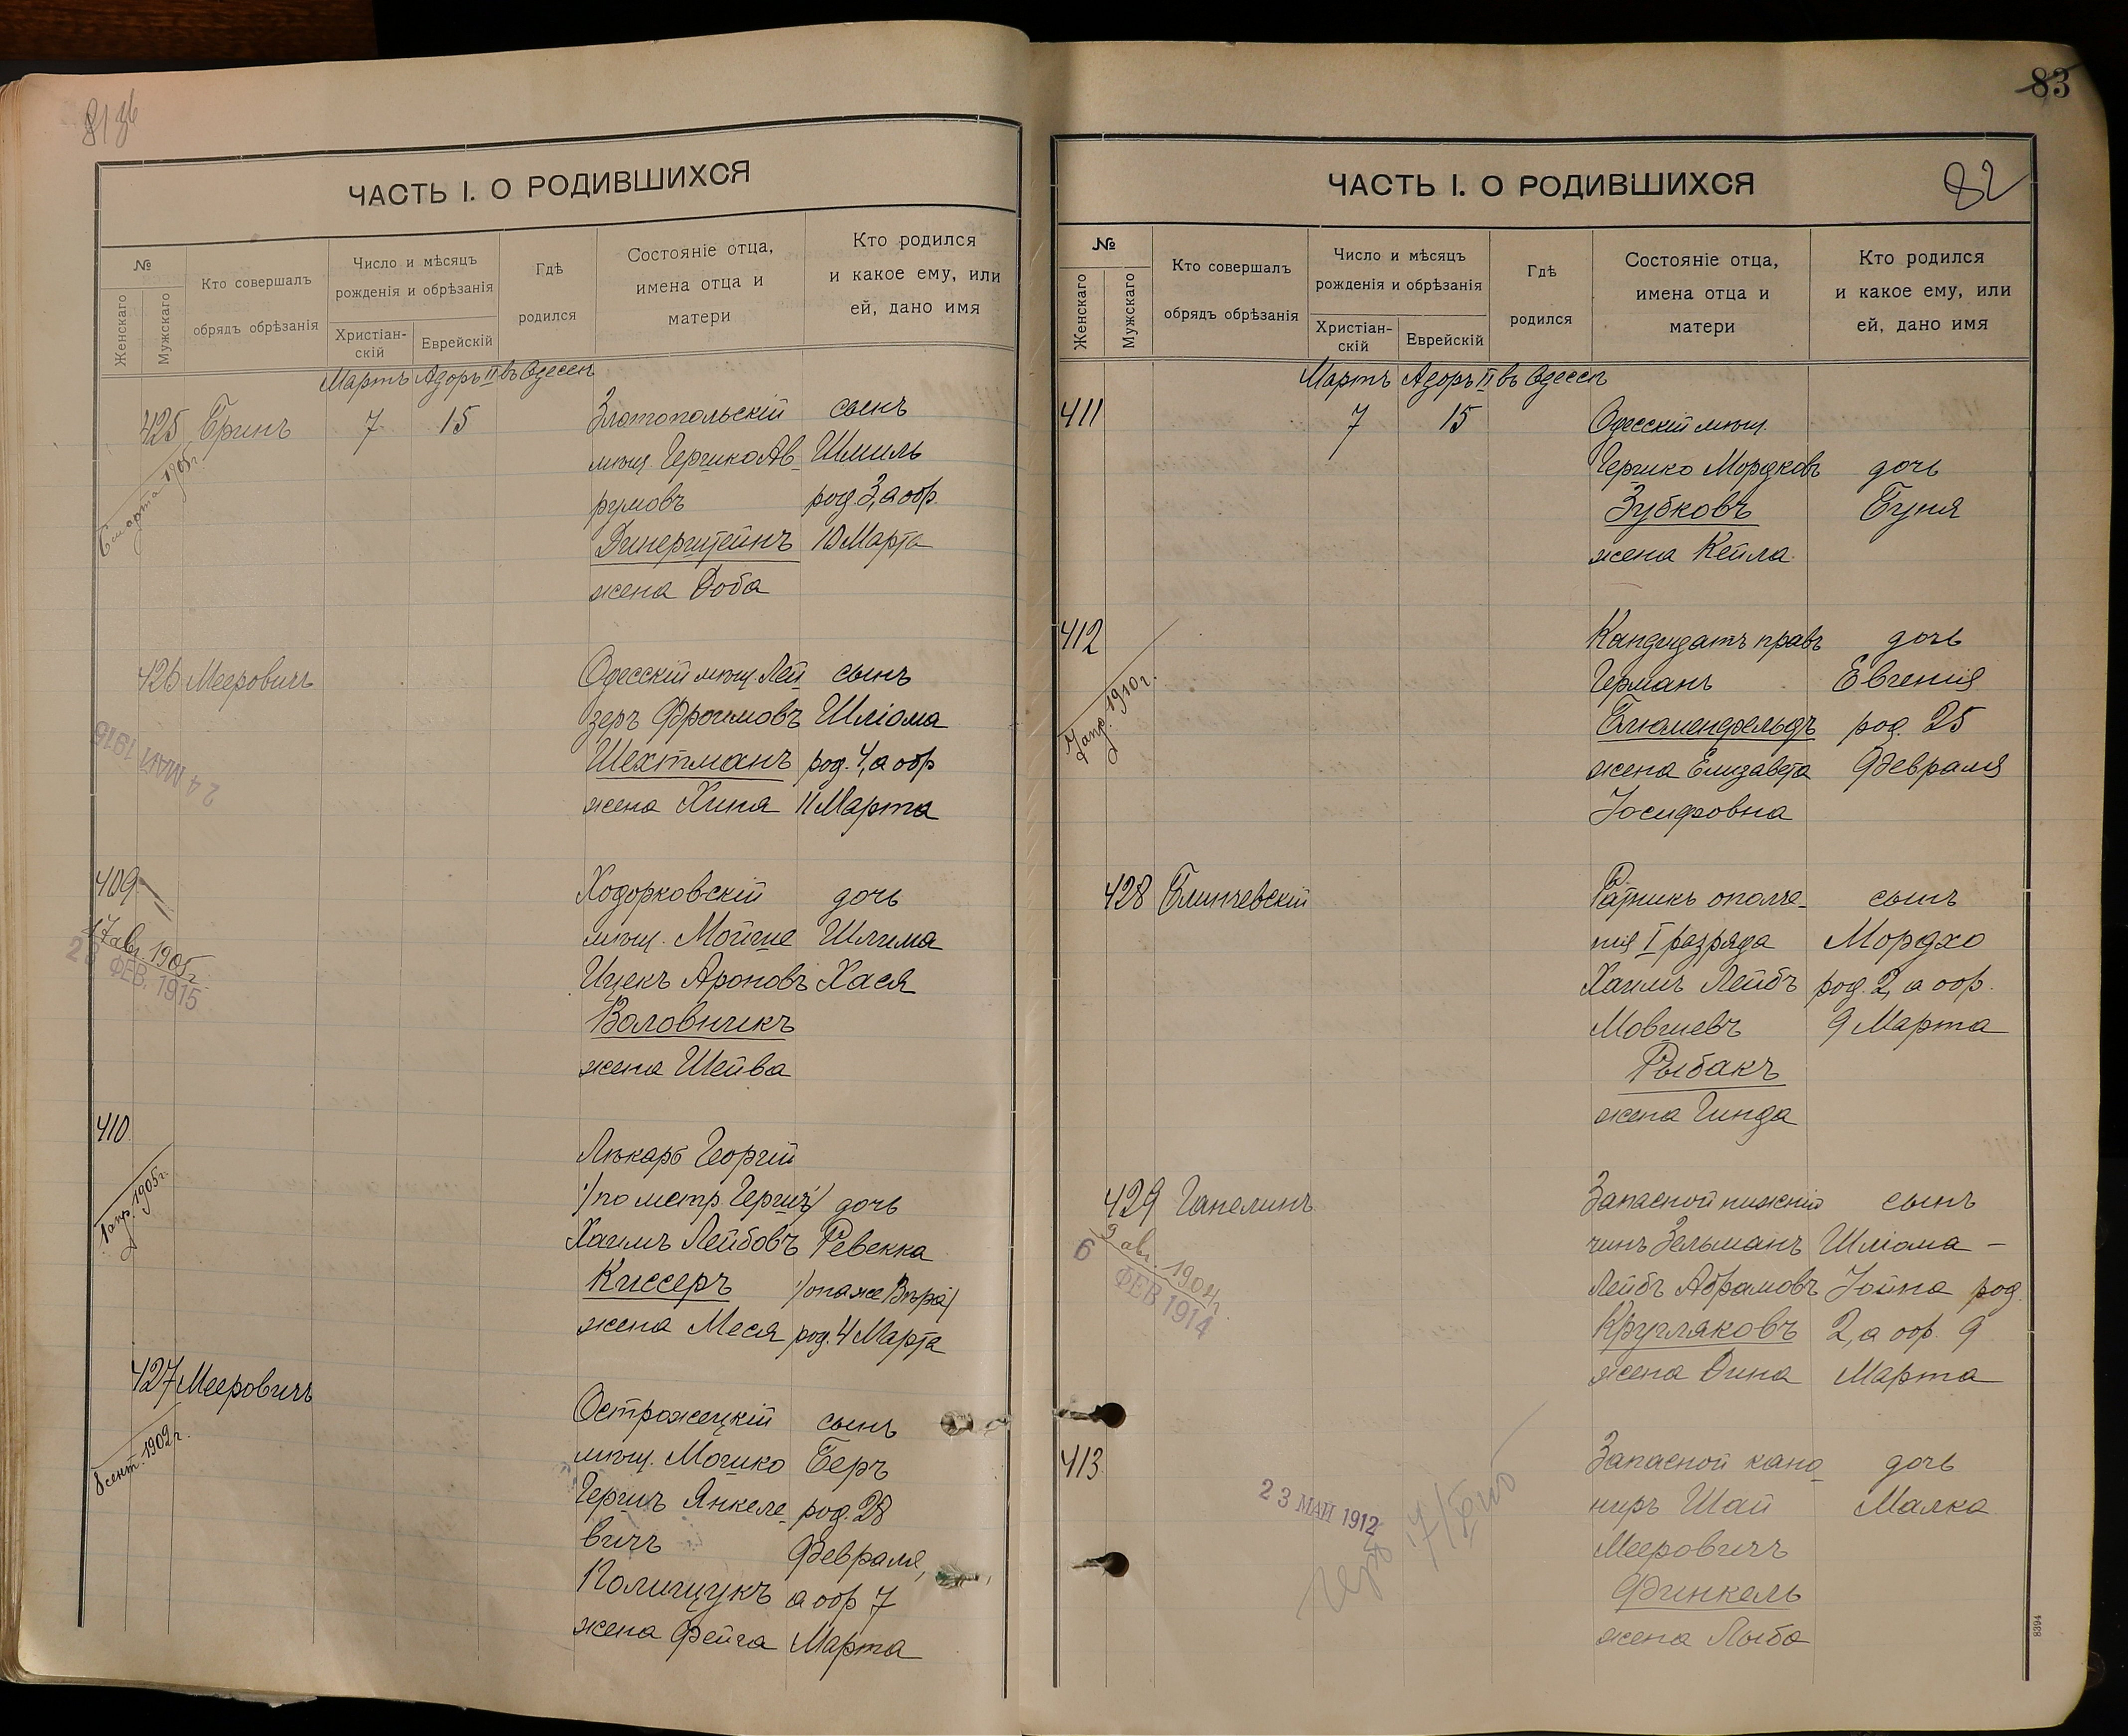 81 об
ЧАСТЬ I. О РОДИВШИХСЯ
№
Женскаго
Мужскаго
Кто совершалъ
обрядъ обрѣзанія
Число и мѣсяцъ
рожденія и обрѣзанія
Христіан-
скій
Еврейскій
Гдѣ
родился
Состояніе отца,
имена отца и
матери
Кто родился
и какое ему, или
ей, дано имя
Мартъ Адоръ II въ Одессѣ
425 Бринъ 7 15 Златопольскій сынъ
мѣщ. Гершко Ав- Шмиль
румовъ род. 3, а обр.
Динерштейнъ 10 Марта
жена Доба
6 марта 1905 г.
426 Мееровичъ Одесскій мѣщ. Лей- сынъ
зеръ Фроимовъ Шліома
Шехтманъ род. 4, а обр
жена Хиня 11 Марта
24 МАЙ 1916
409 Ходорковскій дочь
мѣщ. Мойше Шлима
Ицекъ Ароновъ Хася
Воловникъ
жена Шейва
17 авг. 1905 г.
ФЕВ. 1915
410 Лѣкарь Георгій
/по метр. Гершъ/ дочь
Хаимъ Лейбовъ Ревекка
Киссеръ /она же Вѣра/
жена Меся род. 4 Марта
1 апр. 1905 г.
427 Мееровичъ Острожецкій сынъ
мѣщ. Мошко Беръ
Гершъ Янкеле- род. 28
вичъ Февраля,
Полищукъ а обр 7
жена Фейга Марта
8 сент. 1902 г.
83
82
ЧАСТЬ I. О РОДИВШИХСЯ
№
Женскаго
Мужскаго
Кто совершалъ
обрядъ обрѣзанія
Число и мѣсяцъ
рожденія и обрѣзанія
Христіан-
скій
Еврейскій
Гдѣ
родился
Состояніе отца,
имена отца и
матери
Кто родился
и какое ему, или
ей, дано имя
Мартъ Адоръ II въ Одессѣ
411 7 15 Одесскій мѣщ.
Гершко Мордковъ дочь
Зубковъ Буня
жена Кейла
412 Кандидатъ правъ дочь
Германъ Евгенія
Блюменфельдъ род. 25
жена Елизавета Февраля
Іосифовна
7 апр. 1910 г.
428 Блинчевскій Ратникъ ополче- сынъ
нія I разряда Мордхо
Хаимъ Лейбъ род. 2, а обр.
Мовшевъ 9 Марта
Рыбакъ
жена Гинда
429 Гапелинъ Запасной нижній сынъ
чинъ Зельманъ Шліома -
Лейбъ Абрамовъ Іойна род.
Кругляковъ 2, а обр. 9
жена Дина Марта
9 авг. 1904 г.
6 ФЕВ 1914
413 Запасной кано- дочь
ниръ Шай Малка
Мееровичъ
Финкель
жена Лыба
23 МАЙ 1912
8394